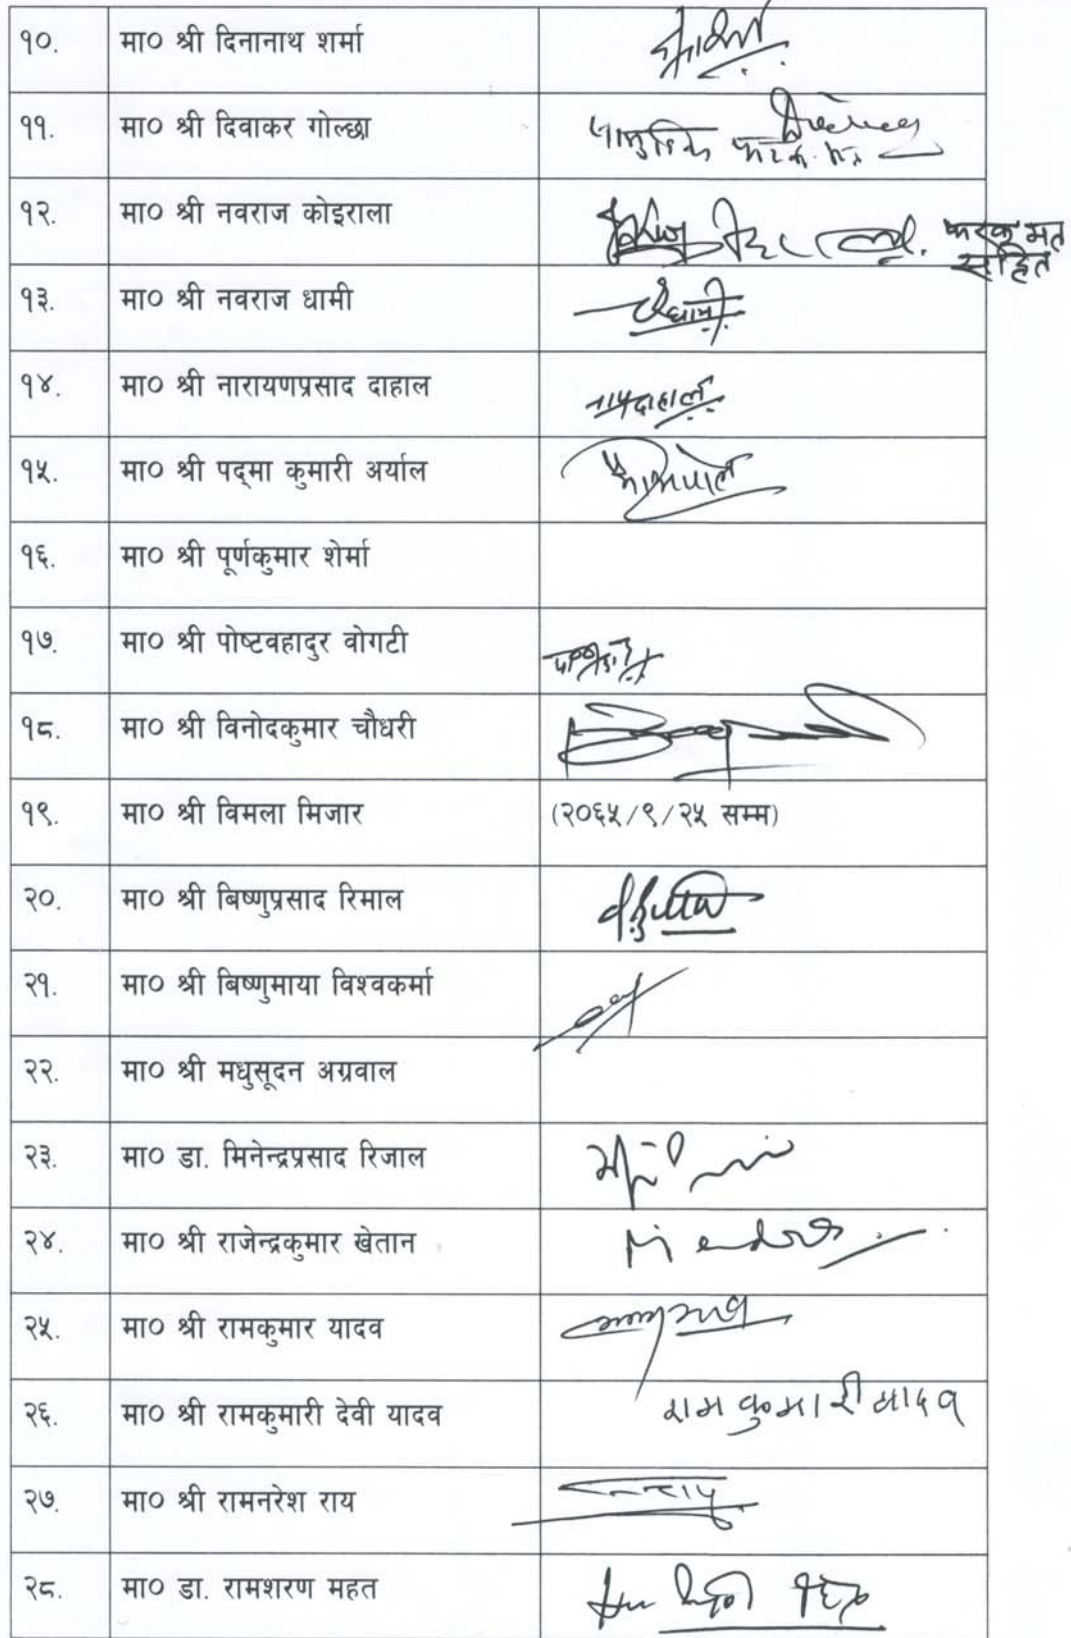 १०. मा० श्री दिनानाथ शर्मा
११. मा० श्री दिवाकर गोल्छा
१२. मा० श्री नवराज कोइराला फरक मत
सहित
१३. मा० श्री नवराज धामी
१४. मा० श्री नारायणप्रसाद दाहाल
१५. मा० श्री पद्मा कुमारी अर्याल
१६. मा० श्री पूर्णकुमार शेर्मा
१७. मा० श्री पोष्टवहादुर वोगटी
१८. मा० श्री विनोदकुमार चौधरी
१९. मा० श्री विमला मिजार (२०६५/९/२५ सम्म)
२०. मा० श्री बिष्णुप्रसाद रिमाल
२१. मा० श्री बिष्णुमाया विश्वकर्मा
२२. मा० श्री मधुसूदन अग्रवाल
२३. मा० डा. मिनेन्द्रप्रसाद रिजाल
२४. मा० श्री राजेन्द्रकुमार खेतान
२५. मा० श्री रामकुमार यादव
२६. मा० श्री रामकुमारी देवी यादव रामकुमारी यादव
२७. मा० श्री रामनरेश राय
२८. मा० डा. रामशरण महत